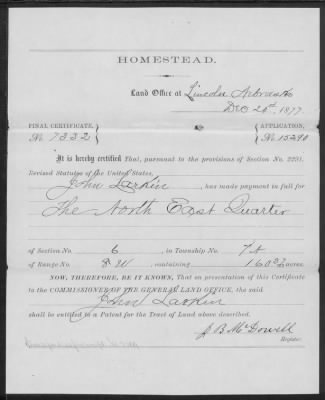 HOMESTEAD.
Land Office at Lincoln Nebraska
Dec 20th 1877.
FINAL CERTIFICATE, APPLICATION,
No 7332 No 15290
It is hereby certified That, pursuant to the provisions of Section No. 2291.
Revised Statutes of the United States,
John Larkin, has made payment in full for
The North East Quarter
of Section No. 6, in Township No. 7
of Range No. 8 W, containing 160 acres.
NOW, THEREFORE, BE IT KNOWN, That on presentation of this Certificate
to the COMMISSIONER OF THE GENERAL LAND OFFICE, the said
John Larkin
shall be entitled to a Patent for the Tract of Land above described.
J B McDowell
Register.